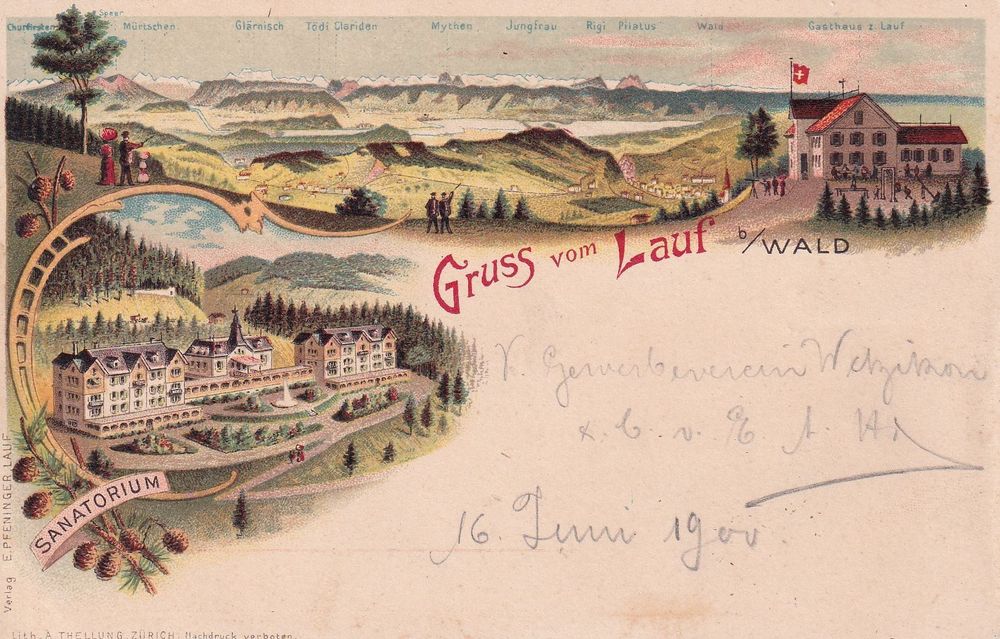 Speer
Churfirsten Mürtschen Glärnisch Tödi Clariden Mythen Jungfrau Rigi Pilatus Wald Gasthaus z. Lauf
Gruss vom Lauf b/WALD
V. Gewerbeverein Wetzikon
16. Juni 1900.
SANATORIUM
Verlag E. PFENINGER, LAUF
Lith. A. THELLUNG, ZÜRICH. Nachdruck verboten.